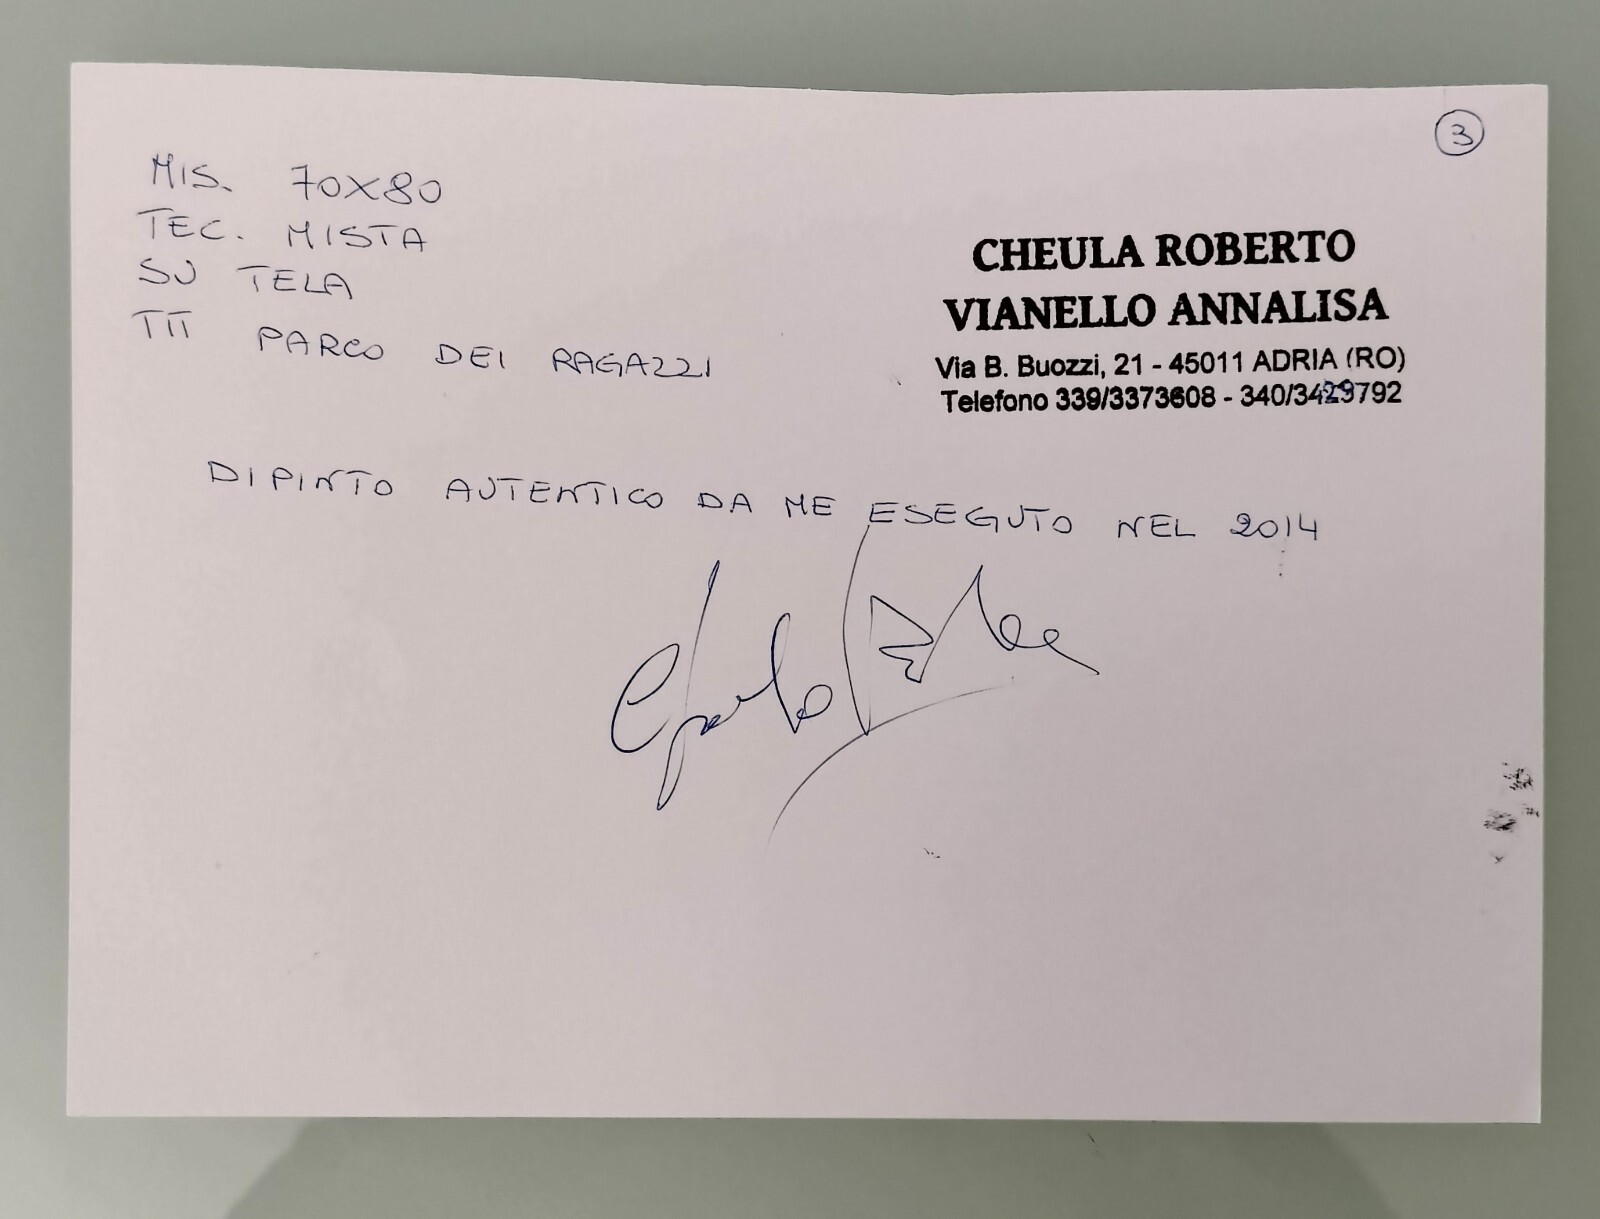 3
MIS. 70X80
TEC. MISTA
SU TELA
TIT PARCO DEI RAGAZZI
CHEULA ROBERTO
VIANELLO ANNALISA
Via B. Buozzi, 21 - 45011 ADRIA (RO)
Telefono 339/3373608 - 340/3429792
DIPINTO AUTENTICO DA ME ESEGUTO NEL 2014